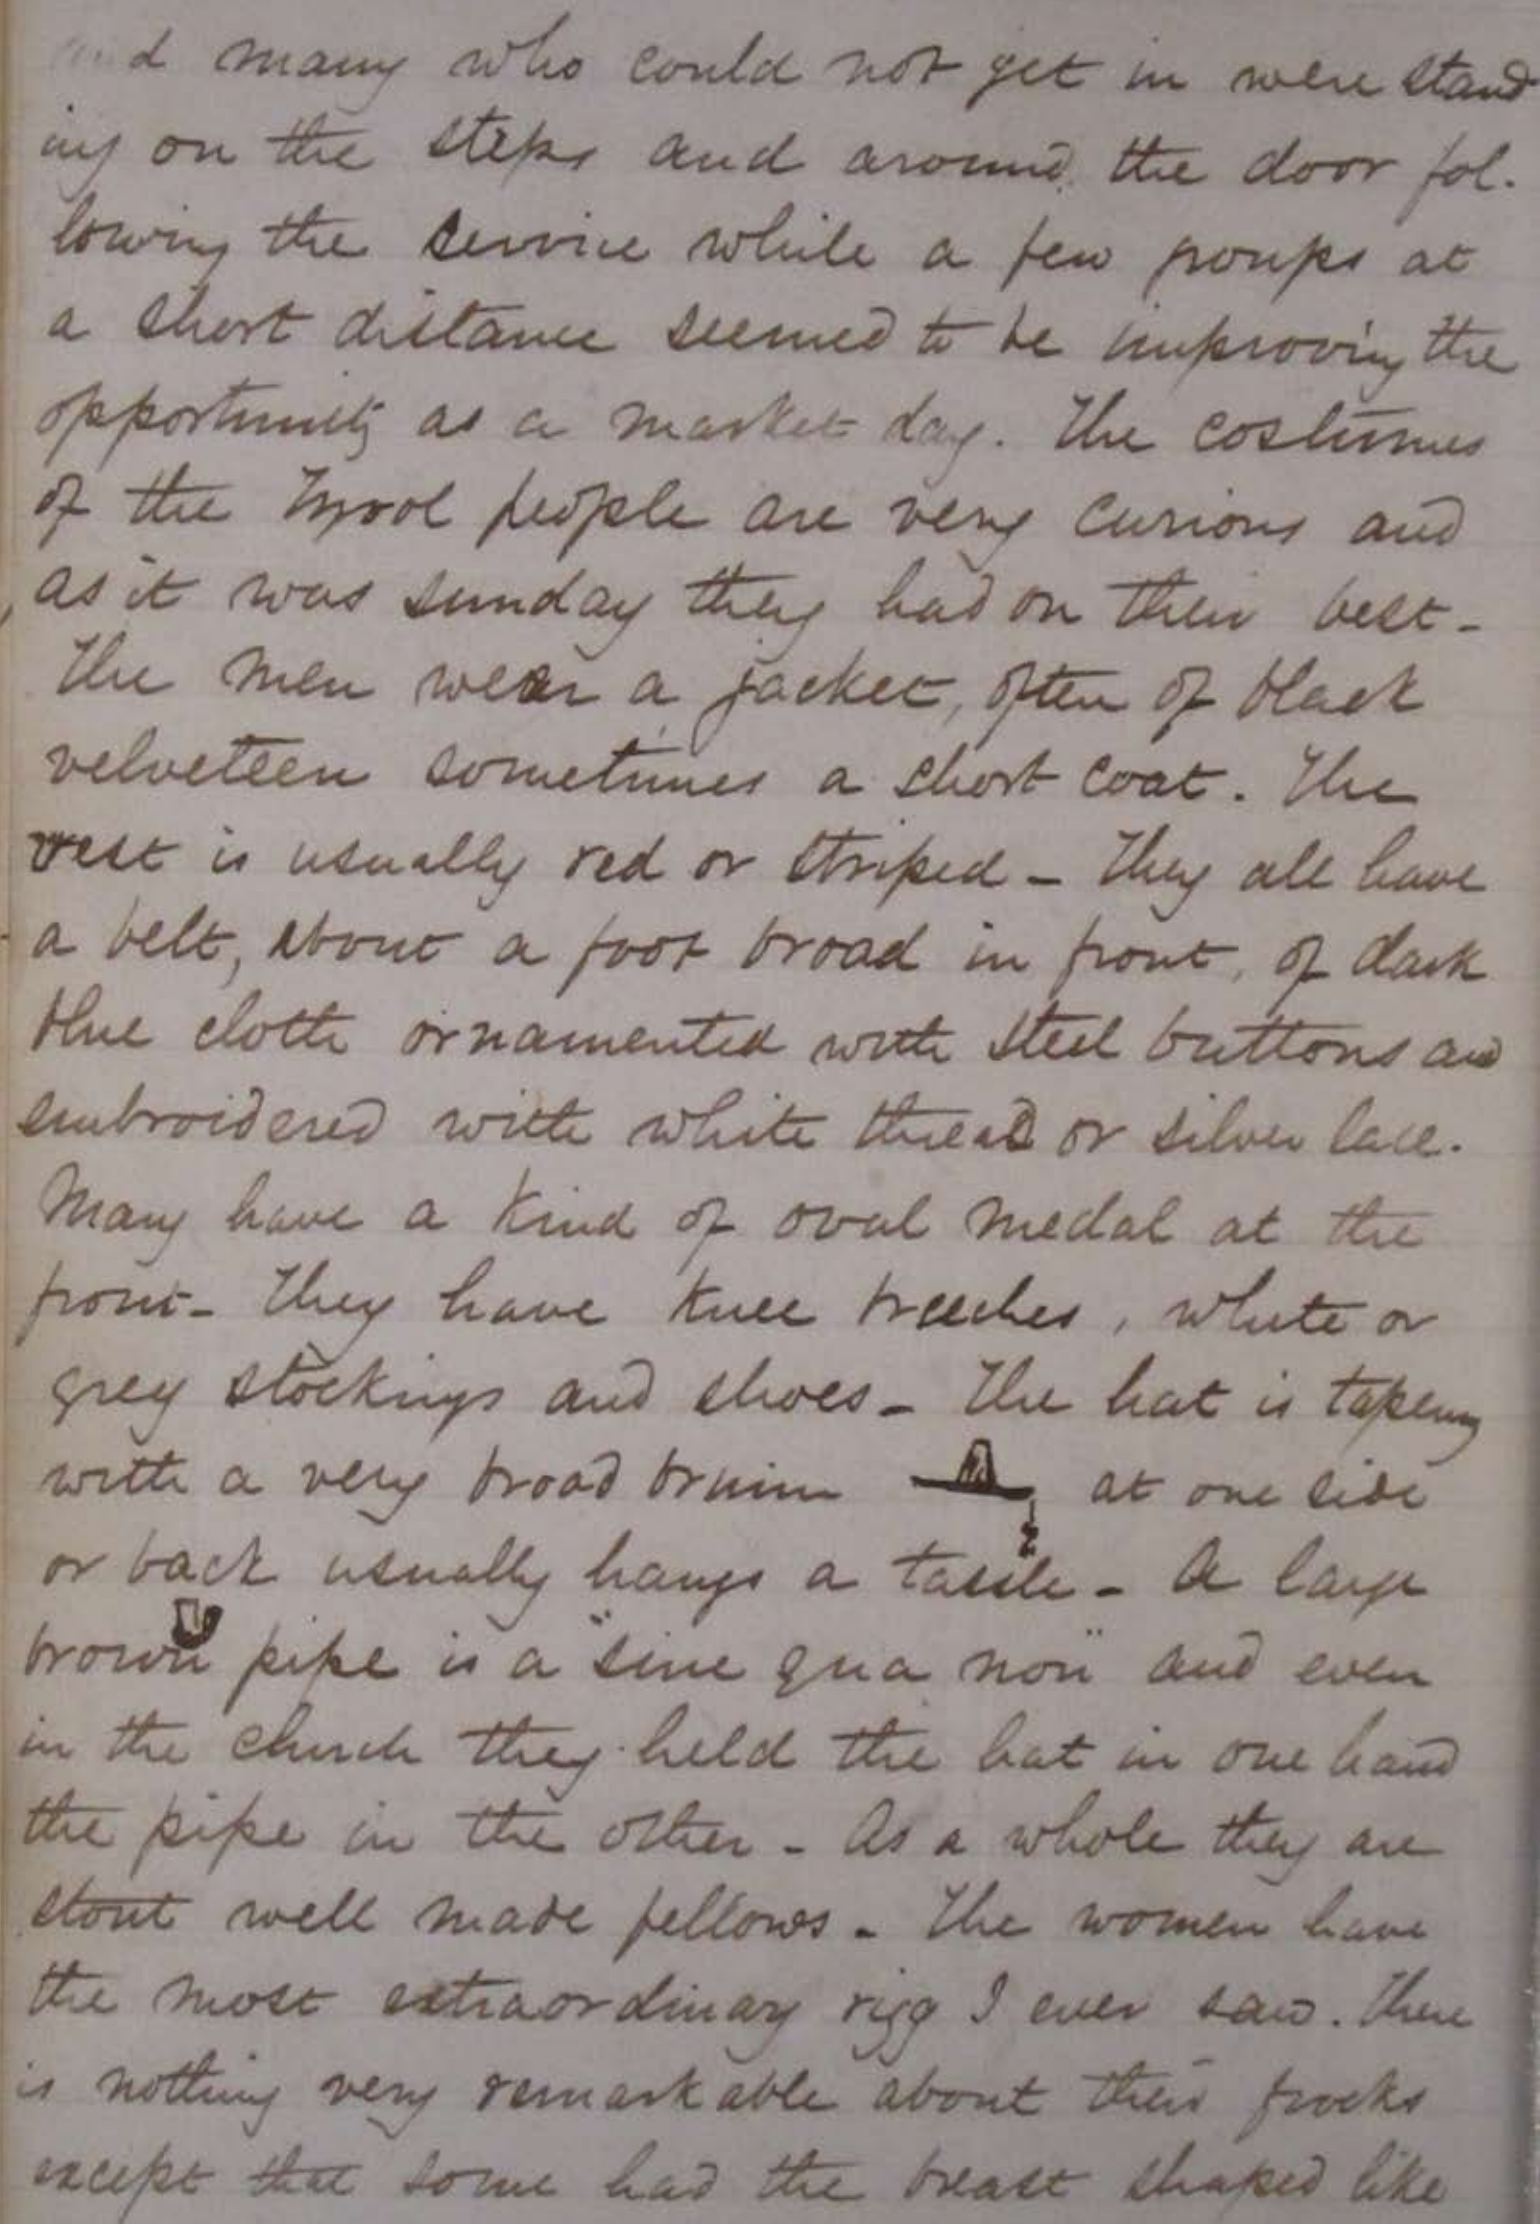 and many who could not get in were stand
ing on the steps and around the door fol-
lowing the service while a few groups at
a short distance seemed to be improving the
opportunity as a market day. The costumes
of the Tyrol people are very curious and
as it was Sunday they had on their best -
The men wear a jacket, often of black
velveteen sometimes a short coat. The
vest is usually red or striped - They all have
a belt, about a foot broad in front, of dark
blue cloth ornamented with steel buttons and
embroidered with white thread or silver lace.
Many have a kind of oval medal at the
front - They have knee breeches, white or
grey stockings and shoes - The hat is tapering
with a very broad brimm at one side
or back usually hangs a tassle - A large
brown pipe is a "sine qua non" and even
in the church they held the hat in one hand
the pipe in the other - As a whole they are
stout well made fellows - The women have
the most extraordinary rigg I ever saw. There
is nothing very remarkable about their frocks
except that some had the breast shaped like